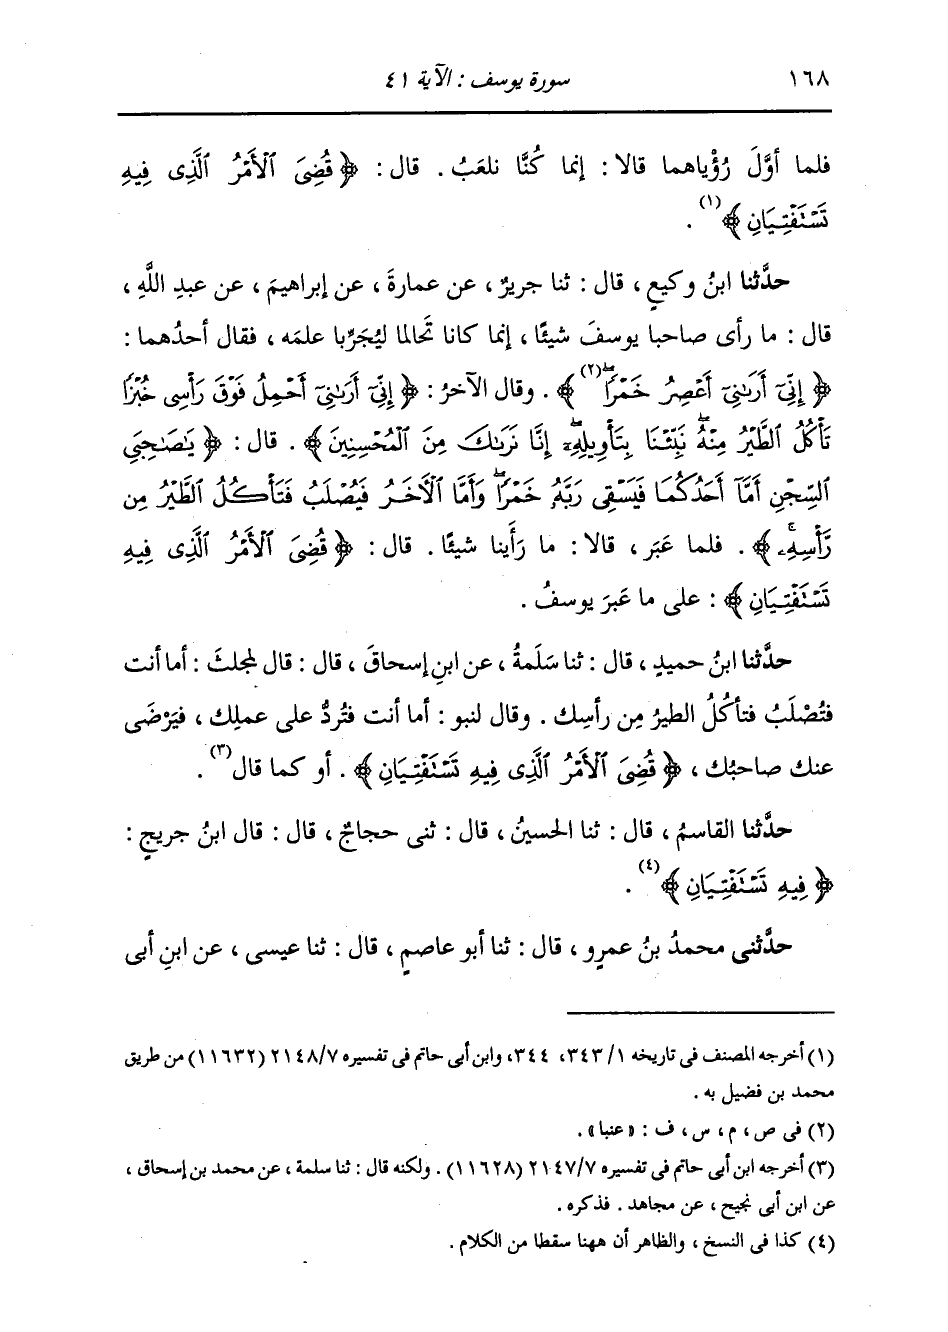 ١٦٨ سورة يوسف : الآية ٤١
فلما أوَّلَ رُؤْياهما قالا : إنما كُنَّا نلعَبُ . قال : ﴿ قُضِىَ ٱلْأَمْرُ ٱلَّذِى فِيهِ
تَسْتَفْتِيَانِ ﴾(١) .
حدَّثنا ابنُ وكيعٍ ، قال : ثنا جريرٌ ، عن عمارةَ ، عن إبراهيمَ ، عن عبدِ اللَّهِ ،
قال : ما رأى صاحبا يوسفَ شيئًا ، إنما كانا تَحالما ليُجَرِّبا علمَه ، فقال أحدُهما :
﴿ إِنِّىٓ أَرَىٰنِىٓ أَعْصِرُ خَمْرًاۖ(٢) ﴾ . وقال الآخرُ : ﴿ إِنِّىٓ أَرَىٰنِىٓ أَحْمِلُ فَوْقَ رَأْسِى خُبْزًا
تَأْكُلُ ٱلطَّيْرُ مِنْهُۖ نَبِّئْنَا بِتَأْوِيلِهِۦٓۖ إِنَّا نَرَىٰكَ مِنَ ٱلْمُحْسِنِينَ ﴾ . قال : ﴿ يَٰصَىٰحِبَىِ
ٱلسِّجْنِ أَمَّآ أَحَدُكُمَا فَيَسْقِى رَبَّهُۥ خَمْرًاۖ وَأَمَّا ٱلْأَخَرُ فَيُصْلَبُ فَتَأْكُلُ ٱلطَّيْرُ مِن
رَّأْسِهِۦۚ ﴾ . فلما عَبَر ، قالا : ما رَأَينا شيئًا . قال : ﴿ قُضِىَ ٱلْأَمْرُ ٱلَّذِى فِيهِ
تَسْتَفْتِيَانِ ﴾ : على ما عَبرَ يوسفُ .
حدَّثنا ابنُ حميدٍ ، قال : ثنا سَلَمةُ ، عن ابنِ إسحاقَ ، قال : قال لمجلثَ : أما أنت
فتُصْلَبُ فتأكُلُ الطيرُ مِن رأسِك . وقال لنبو : أما أنت فتُردُّ على عملِك ، فيَرْضَى
عنك صاحبُك ، ﴿ قُضِىَ ٱلْأَمْرُ ٱلَّذِى فِيهِ تَسْتَفْتِيَانِ ﴾ . أو كما قال(٣) .
حدَّثنا القاسمُ ، قال : ثنا الحسينُ ، قال : ثنى حجاجٌ ، قال : قال ابنُ جريجٍ :
﴿ فِيهِ تَسْتَفْتِيَانِ ﴾(٤) .
حدَّثنى محمدُ بنُ عمرٍو ، قال : ثنا أبو عاصمٍ ، قال : ثنا عيسى ، عن ابنِ أبى
(١) أخرجه المصنف فى تاريخه ٣٤٣/١، ٣٤٤، وابن أبى حاتم فى تفسيره ٢١٤٨/٧ (١١٦٣٢) من طريق
محمد بن فضيل به .
(٢) فى ص ، م ، س ، ف : « عنبا » .
(٣) أخرجه ابن أبى حاتم فى تفسيره ٢١٤٧/٧ (١١٦٢٨) . ولكنه قال : ثنا سلمة ، عن محمد بن إسحاق ،
عن ابن أبى نجيح ، عن مجاهد . فذكره .
(٤) كذا فى النسخ ، والظاهر أن ههنا سقطا من الكلام .